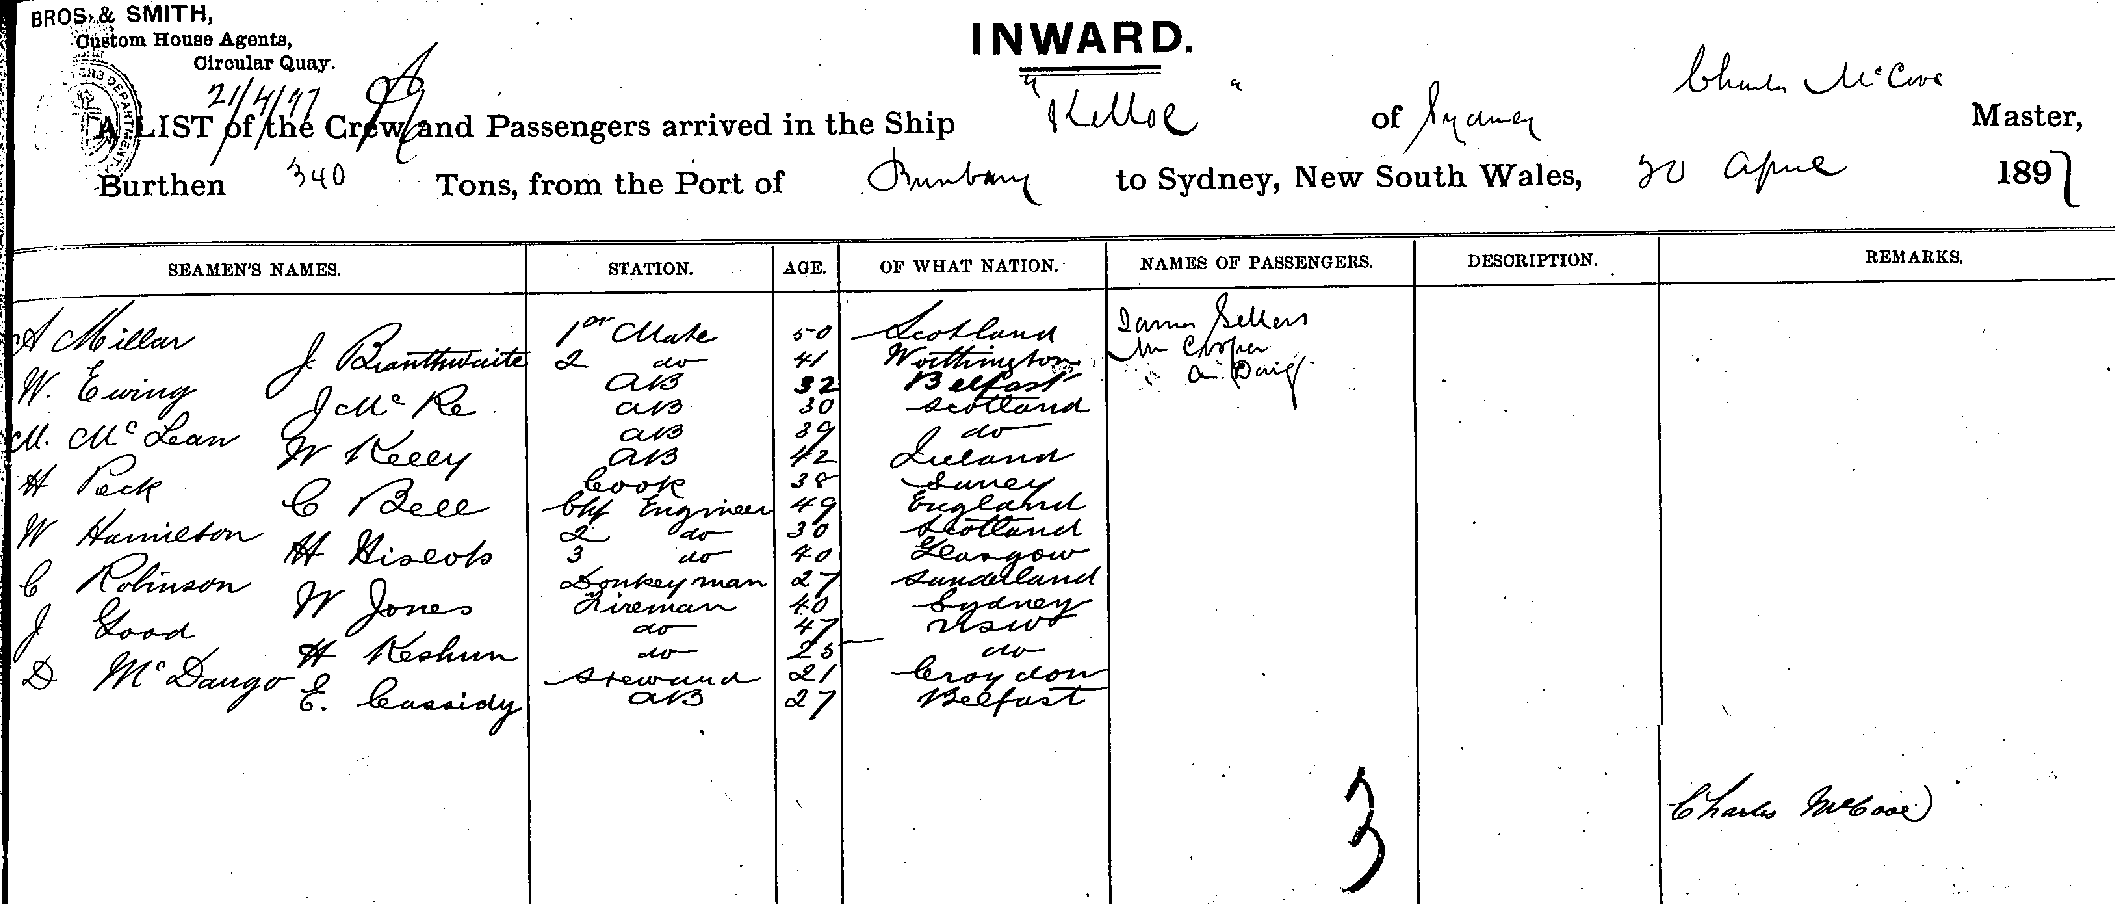 BROS. & SMITH,
Custom House Agents,
Circular Quay.
INWARD.
21/4/97
Charles McCove
A LIST of the Crew and Passengers arrived in the Ship "Kelloe" of Sydney Master,
Burthen 340 Tons, from the Port of Bunbury to Sydney, New South Wales, 20 April 1897
SEAMEN'S NAMES. STATION. AGE. OF WHAT NATION. NAMES OF PASSENGERS. DESCRIPTION. REMARKS.
A Millar 1st Mate 50 Scotland James Sellers
J Branthwaite 2 do 41 Worthington Cooper
W. Ewing AB 32 Belfast
J McKe AB 30 Scotland
M. McLean AB 39 do
W Kelly AB 42 Ireland
H Peck Cook 38 Surrey
C Bell Chf Engineer 49 England
W Hamilton 2 do 30 Scotland
H Hiscots 3 do 40 Glasgow
C Robinson Donkeyman 27 Sunderland
W Jones Fireman 40 Sydney
J Good do 47 NSW
H Keshun do 25 do
D McDaugo Steward 21 Croydon
E. Cassidy AB 27 Belfast
3
Charles McCove